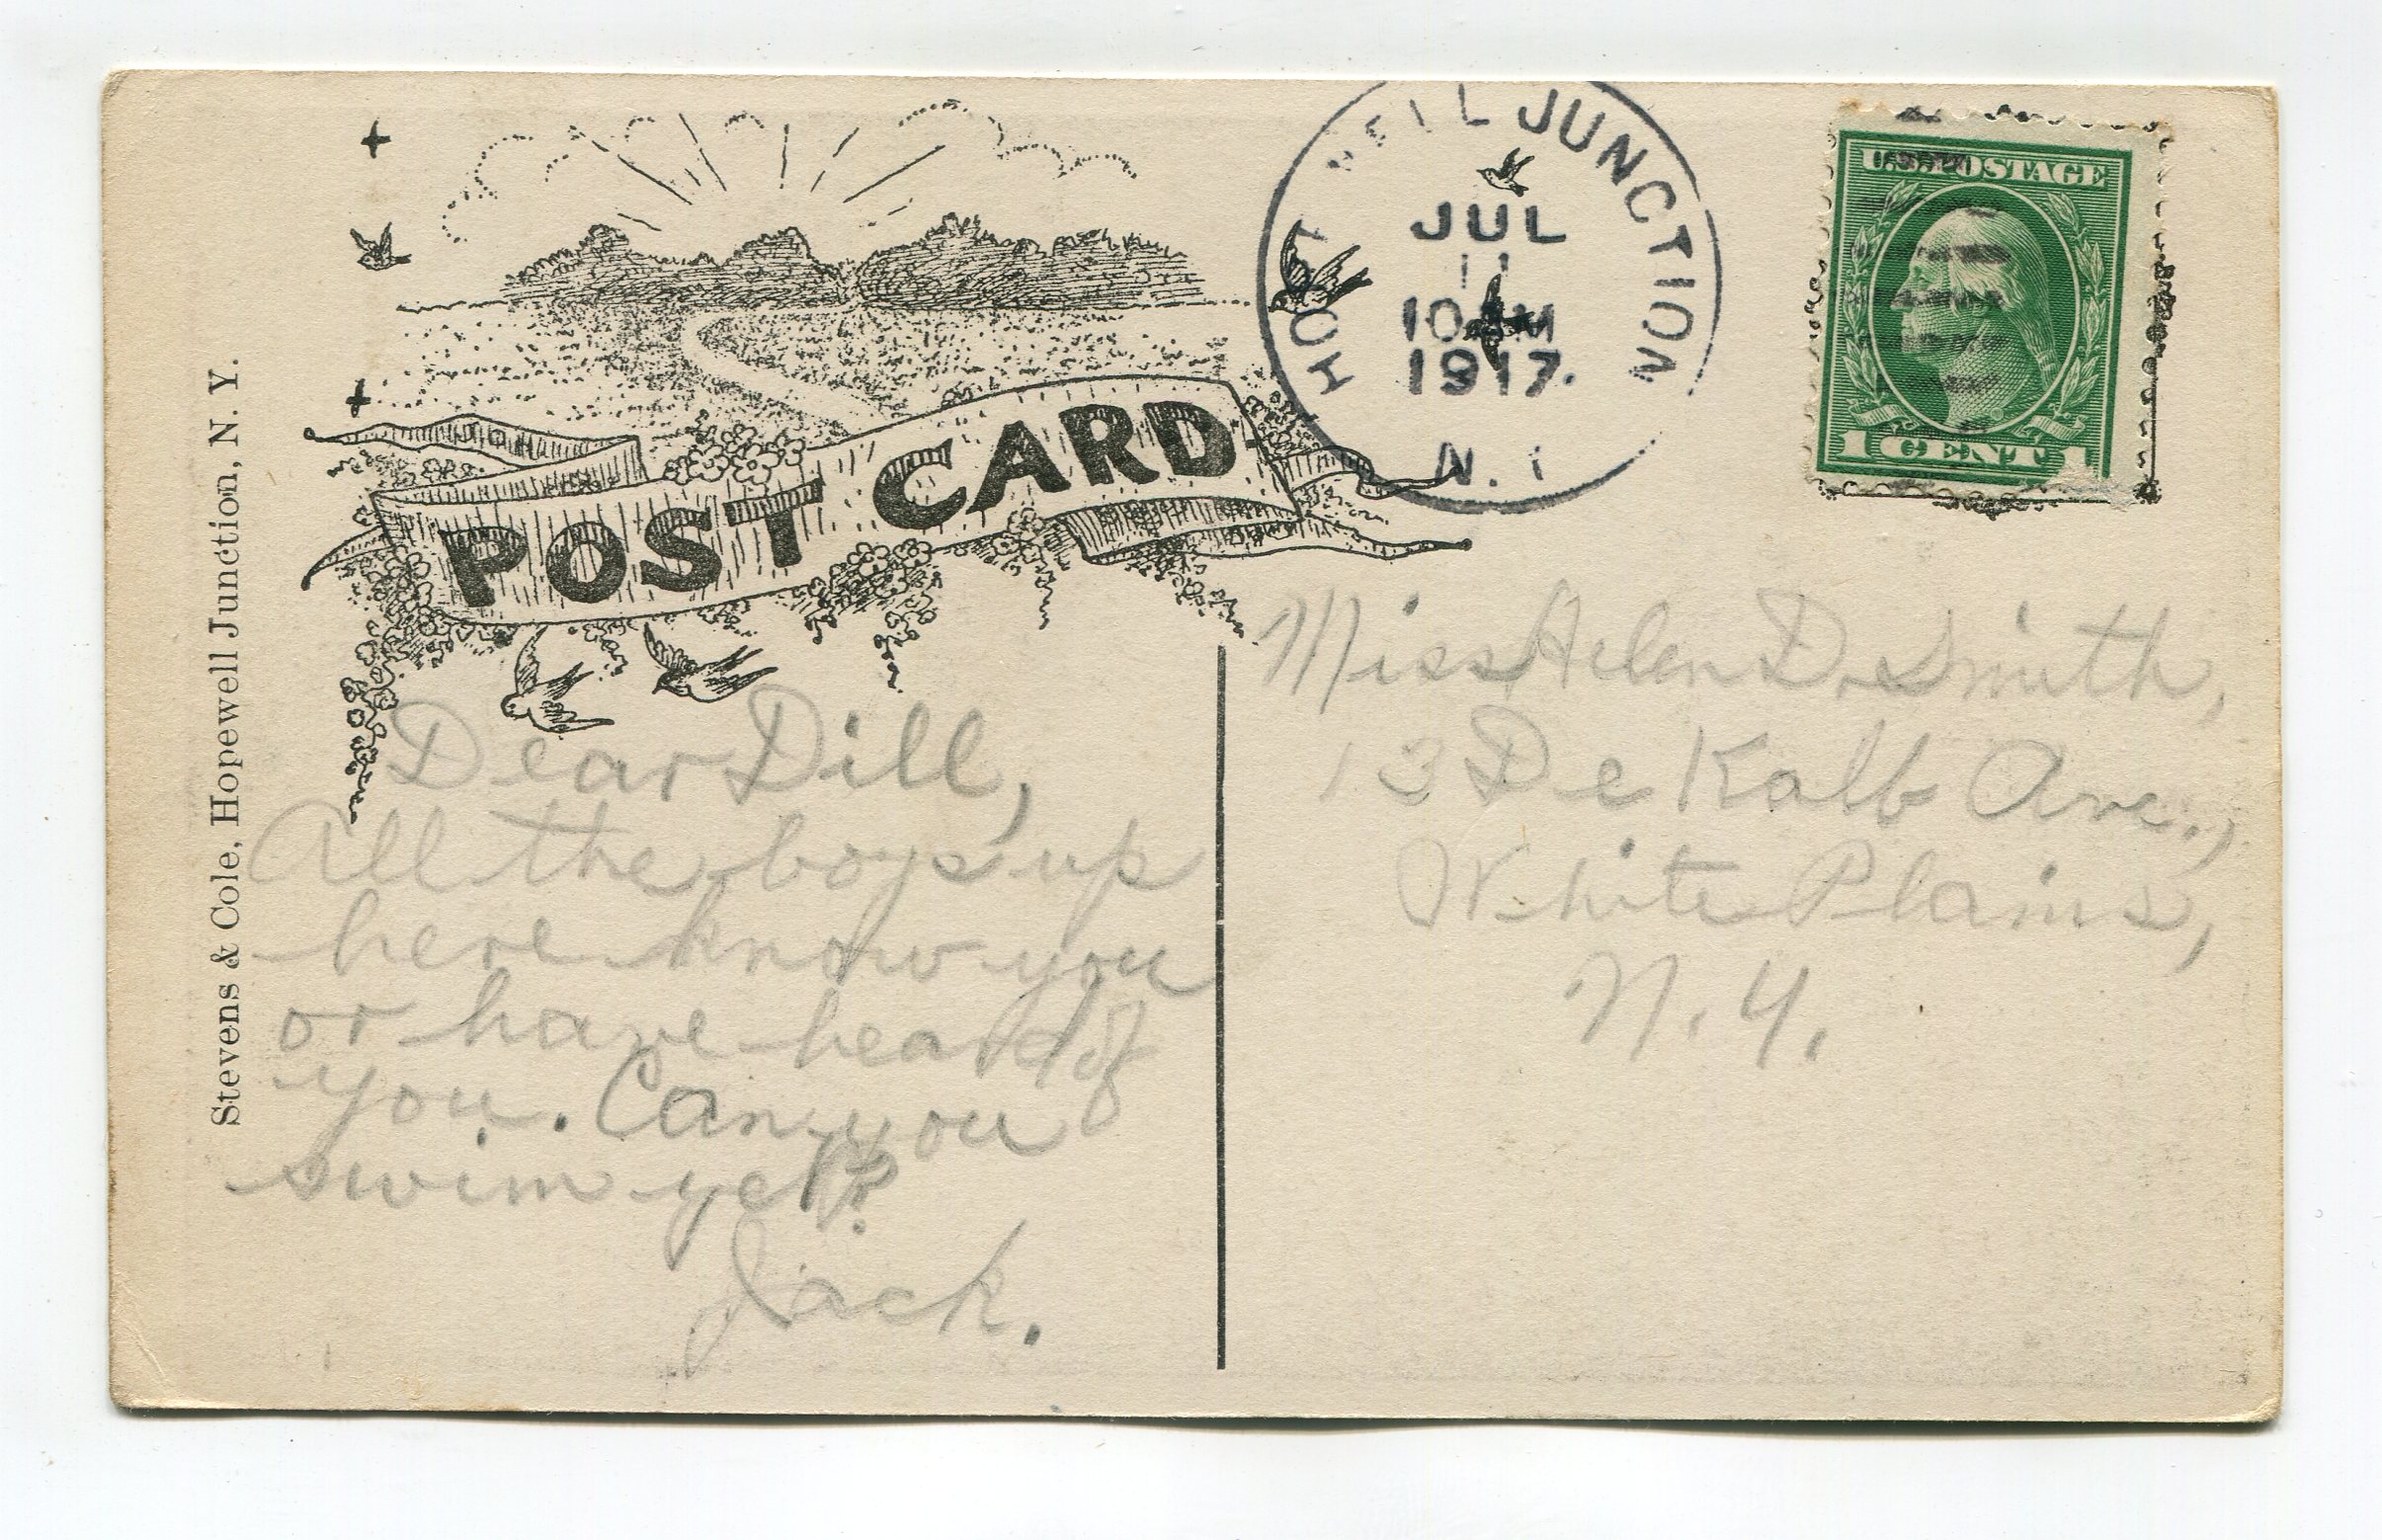 Stevens & Cole, Hopewell Junction, N. Y.
POST CARD
HOPEWELL JUNCTION
JUL
11
10 AM
1917.
N. Y.
U.S. POSTAGE
1 CENT 1
Dear Dill,
All the boys up
here know you
or have heard of
you. Can you
swim yet?
Jack.
Miss Helen D. Smith,
13 De Kalb Ave.,
White Plains,
N. Y.